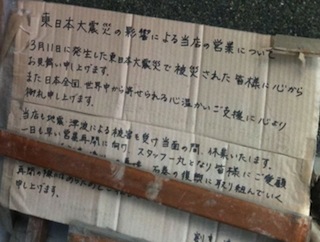 東日本大震災の影響による当店の営業について
3月11日に発生した東日本大震災で被災された皆様に心から
お見舞い申し上げます。
また日本全国、世界中から寄せられる心温かいご支援に心より
御礼申し上げます。
当店も地震、津波による被害を受け当面の間、休業いたします。
一日も早い営業再開に向け、スタッフ一丸となり皆様にご愛顧
石巻の復興に取り組んでいく
再開の
申し上げます。